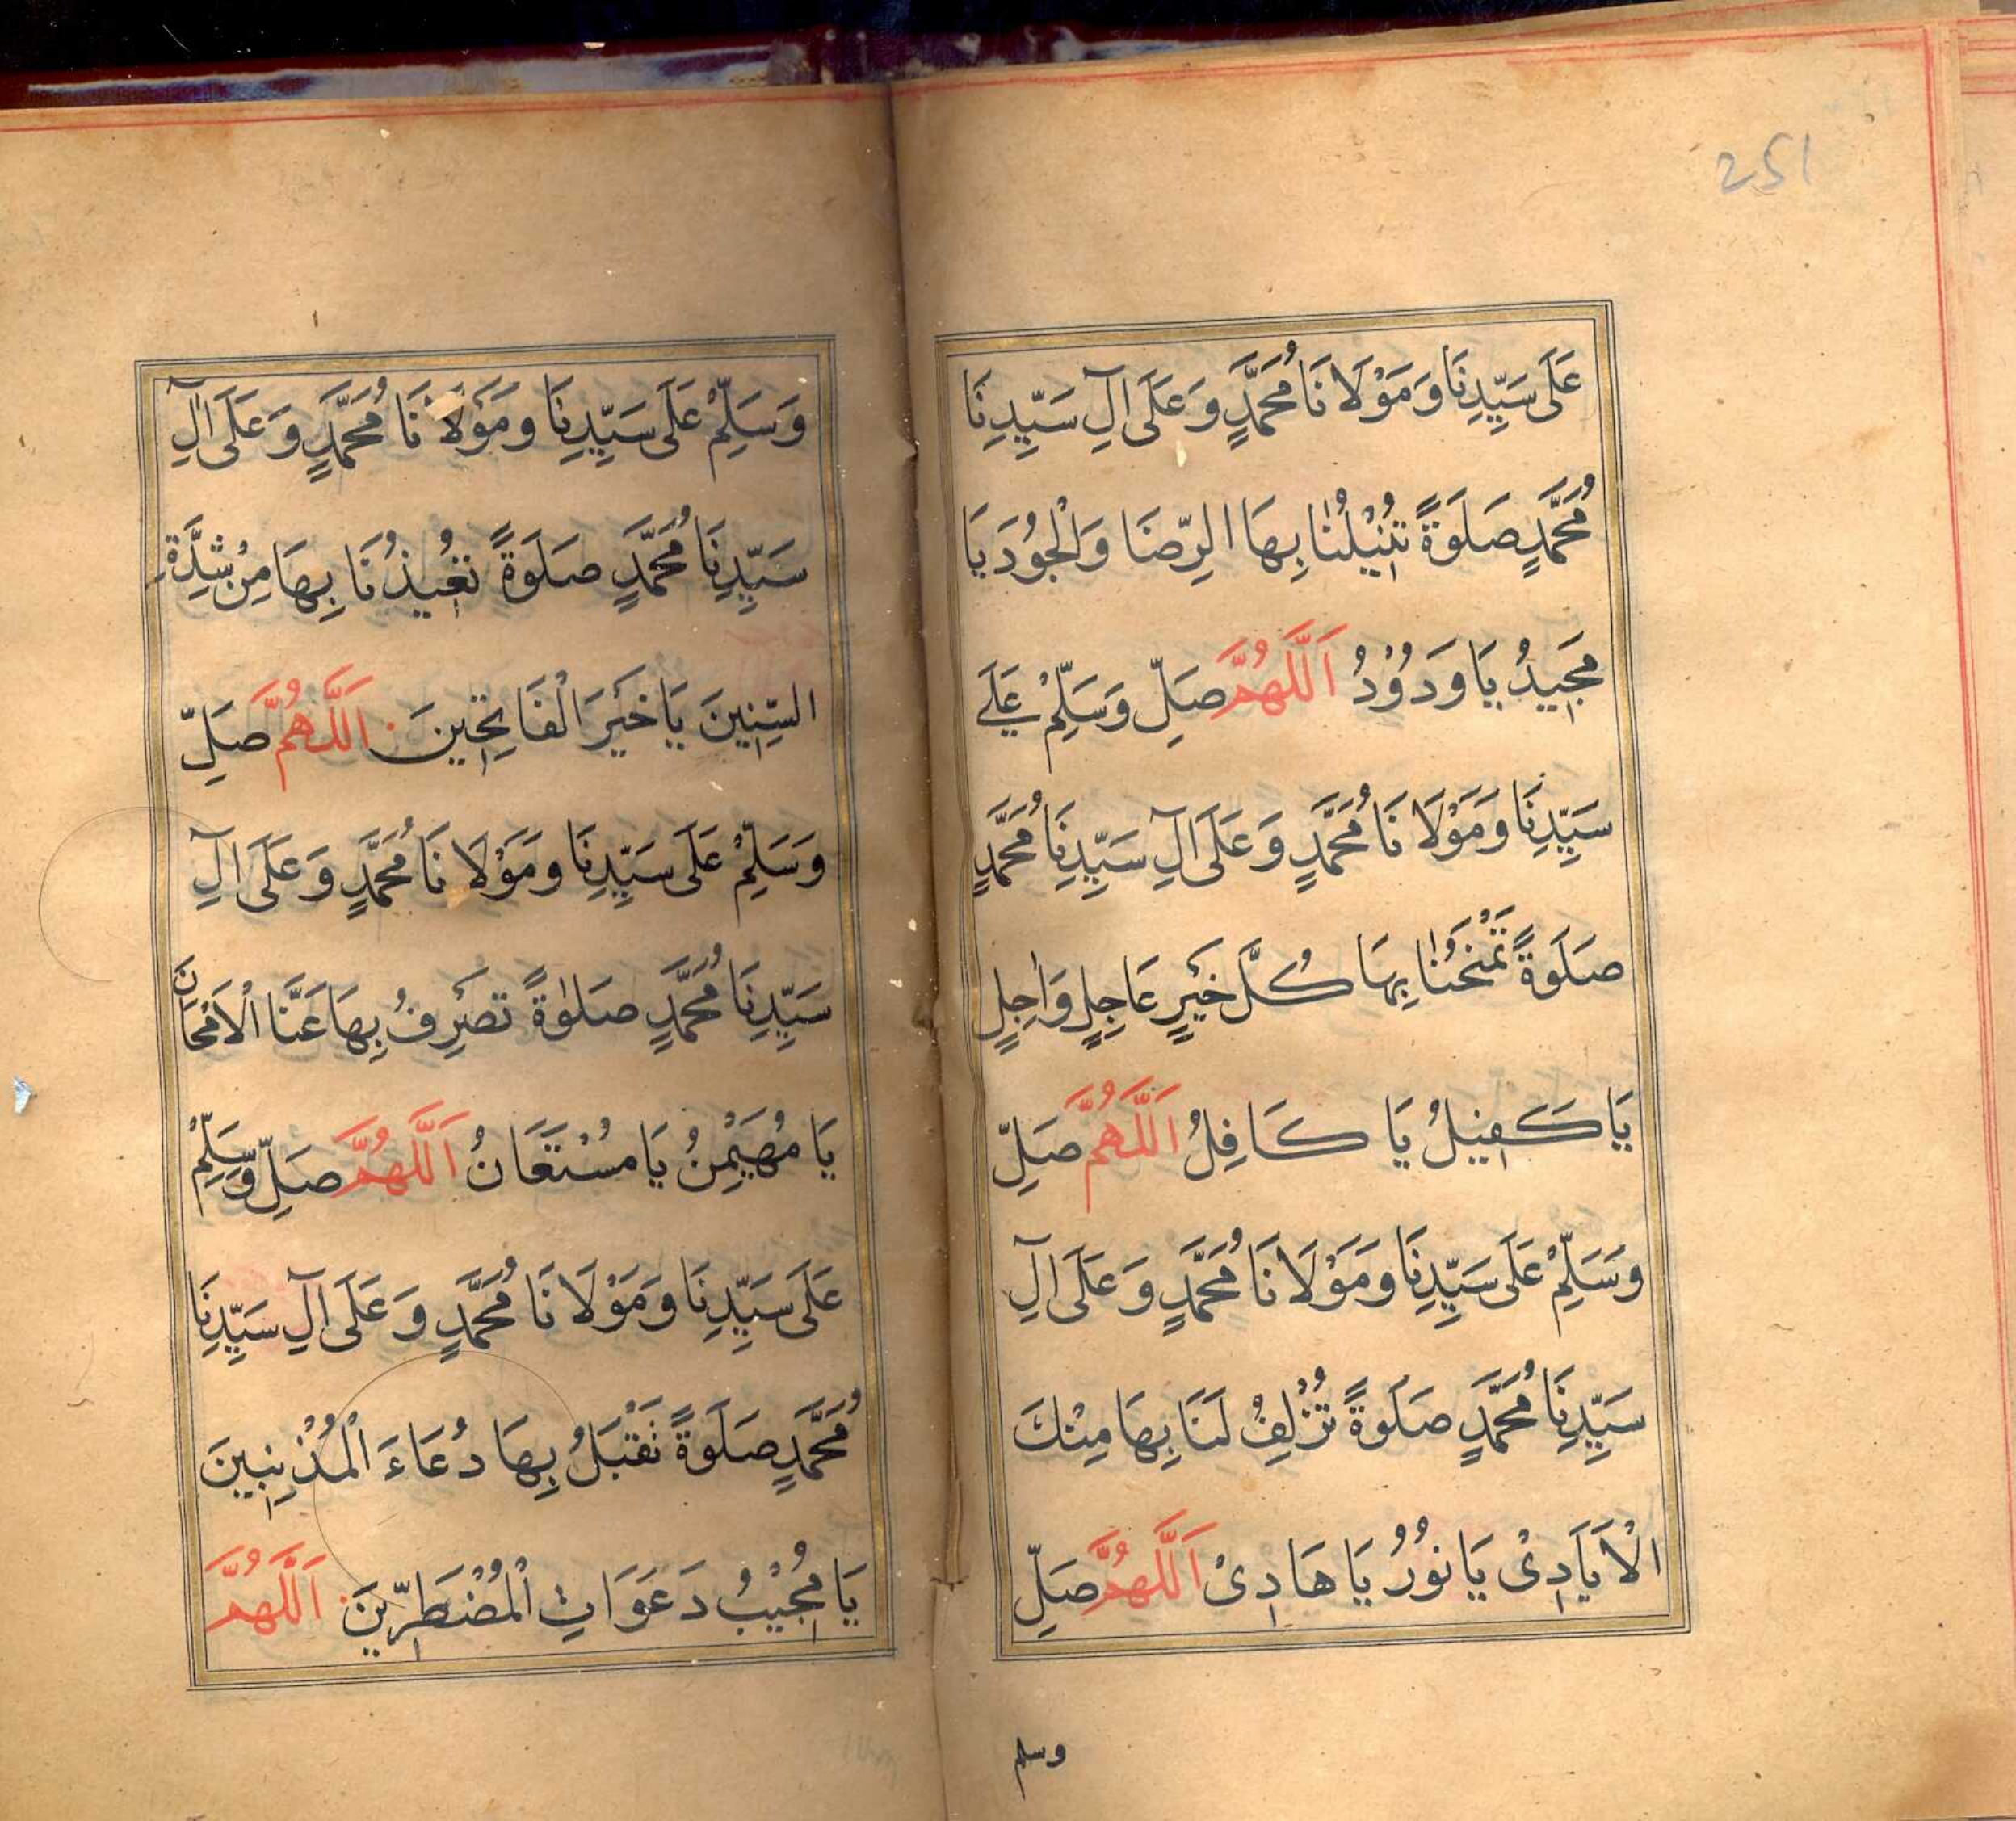 251
عَلَى سَيِّدِنَا وَمَوْلَانَا مُحَمَّدٍ وَعَلَى آلِ سَيِّدِنَا
مُحَمَّدٍ صَلَوةً تُنِيْلُنَا بِهَا الرِّضَا وَالْجُوْدَ يَا
مَجِيدُ يَا وَدُوْدُ اَللَّهُمَّ صَلِّ وَسَلِّمْ عَلَے
سَيِّدِنَا وَمَوْلَانَا مُحَمَّدٍ وَعَلَى آلِ سَيِّدِنَا مُحَمَّدٍ
صَلَوةً تَمْنَحُنَا بِهَا كُلَّ خَيْرٍ عَاجِلٍ وَاٰجِلٍ
يَا كَفِيْلُ يَا كَافِلُ اَللَّهُمَّ صَلِّ
وَسَلِّمْ عَلَى سَيِّدِنَا وَمَوْلَانَا مُحَمَّدٍ وَعَلَى آلِ
سَيِّدِنَا مُحَمَّدٍ صَلَوةً تُزْلِفُ لَنَا بِهَا مِنْكَ
الْاَيَادِىْ يَا نُوْرُ يَا هَادِىْ اَللَّهُمَّ صَلِّ
وسلم
وَسَلِّمْ عَلَى سَيِّدِنَا وَمَوْلَانَا مُحَمَّدٍ وَعَلَى آلِ
سَيِّدِنَا مُحَمَّدٍ صَلَوةً تُعِيْذُنَا بِهَا مِنْ شِدَّةِ
السِّنِينَ يَا خَيْرَ الْفَاتِحِينَ اَللَّهُمَّ صَلِّ
وَسَلِّمْ عَلَى سَيِّدِنَا وَمَوْلَانَا مُحَمَّدٍ وَعَلَى آلِ
سَيِّدِنَا مُحَمَّدٍ صَلٰوةً تَصْرِفُ بِهَا عَنَّا الْاَمْحَانَ
يَا مُهَيْمِنُ يَا مُسْتَعَانُ اَللَّهُمَّ صَلِّ وَسَلِّمْ
عَلَى سَيِّدِنَا وَمَوْلَانَا مُحَمَّدٍ وَعَلَى آلِ سَيِّدِنَا
مُحَمَّدٍ صَلَوةً تَقْبَلُ بِهَا دُعَاءَ الْمُذْنِبِينَ
يَا مُجِيْبُ دَعَوَاتِ الْمُضْطَرِّينَ اَللَّهُمَّ